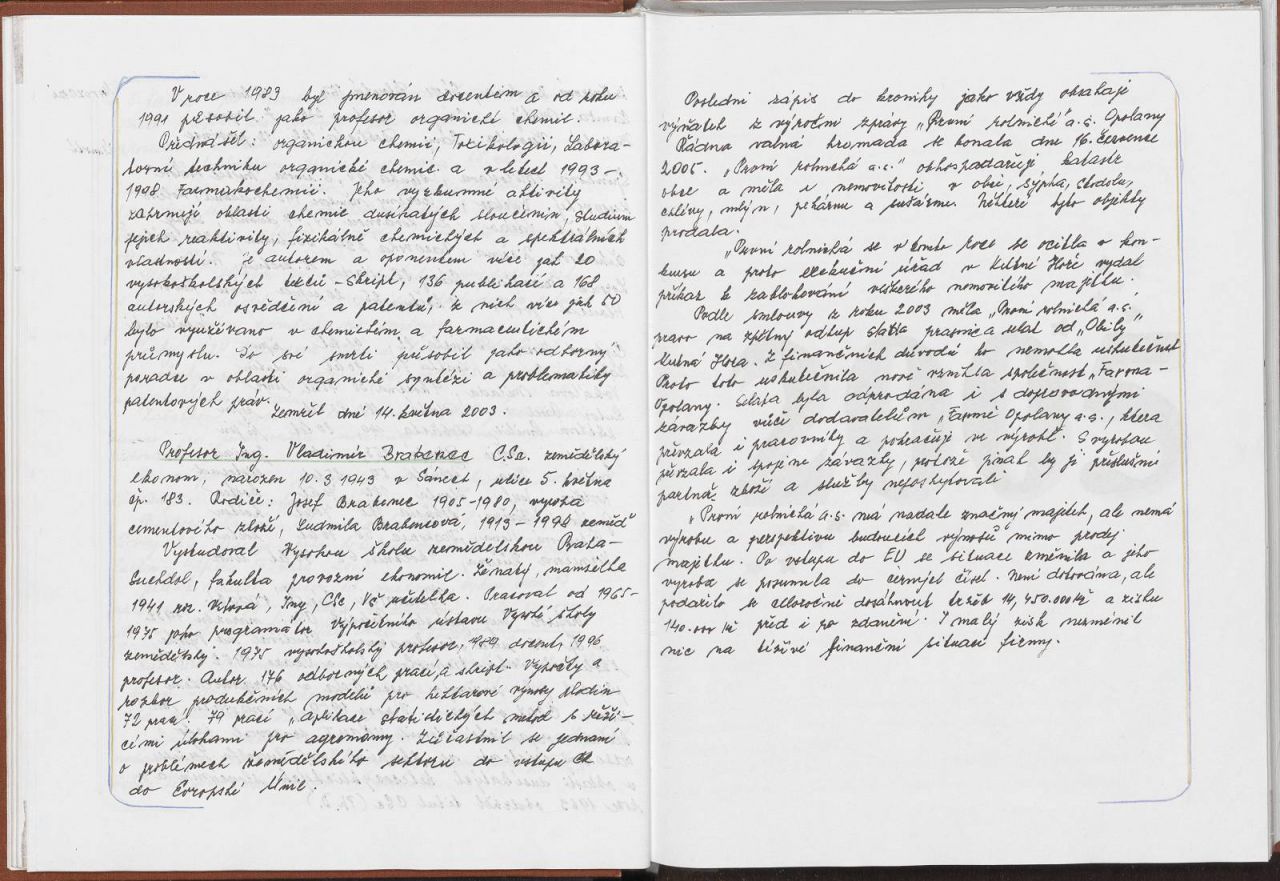 V roce 1983 byl jmenován docentem a od roku
1991 působil jako profesor organické chemie.
Přednášel: organickou chemii, Toxikologii, Labora-
torní techniku organické chemie a v letech 1993-
1998 Farmakochemii. Jeho výzkumné aktivity
zahrnují oblasti chemie dusíkatých sloučenin, studium
jejich reaktivity, fizikálně chemických a spektrálních
vlastností. Je autorem a oponentem více jak 20
vysokoškolských textů - skript, 136 publikací a 168
autorských osvědčení a patentů, z nich více jak 50
bylo využíváno v chemickém a farmaceutickém
průmyslu. Do své smrti působil jako odborný
poradce v oblasti organické syntézi a problematiky
patentových práv.
Zemřel dne 14. května 2003.
Profesor Ing. Vladimír Brabenec CSc. zemědělský
ekonom, narozen 10.3 1943 v Sánech, ulice 5. května
čp. 183. Rodiče: Josef Brabenec 1905-1980, výroba
cementového zboží, Ludmila Brabencová, 1913-
Vystudoval Vysokou školu zemědělskou Praha-
Suchdol, fakulta provozně ekonomic. Ženatý, manželka
1941 roz. Ing, CSc, VŠ učitelka. Pracoval od 1965-
1975 jako programátor Výpočetního ústavu Vysoké školy
zemědělský. 1975 vysokoškolský profesor, 1989 docent, 1996
profesor. Autor 176 odborných prací a skript. Výpočty a
rozbor produkčních modelů pro hektarové výnosy plodin
72 prac. 79 prací „Aplikace statistických metod k řeší-
cími úlohami pro agronomy. Zúčastnil se jednání
o problémech zemědělského sektoru do vstupu ČR
do Evropské Unie.
Poslední zápis do kroniky jako vždy obsahuje
výňatek z výroční zprávy „První rolnické" a.s. Opolany
Řádná valná hromada se konala dne 16. července
2005. „První rolnická a.s." obhospodařuje katastr
obce a měla i nemovitosti v obci, sýpka, stodola,
chlévy, mlýn, pekárnu a sušárnu. Některé tyto objekty
prodala.
„První rolnická se v tomto roce se ocitla v kon-
kursu a proto exekuční úřad v Kutné Hoře vydal
příkaz k zablokování veškerého nemovitého majetku.
Podle smlouvy z roku 2003 měla „První rolnická a.s.
pravo na zpětný odkup stáda prasnic a selat od „Obily„
Kutná Hora. Z finančních důvodů to nemohla uskutečnit
Proto toto uskutečnila nově vzniklá společnost „Farma-
Opolany. Selata byla odprodána i s doprovodnými
závazky vůči dodavatelům „Farmě Opolany a.s., která
převzala i pracovníky a pokračuje ve výrobě. S výrobou
převzala i spojené závazky, protože jinak by jí příslušní
partneři zboží a služby neposkytovali
„První rolnická a.s. má nadále značný majetek, ale nemá
výrobu a perspektivu budoucích výnosů mimo prodej
majetku. Po vstupu do EU se situace změnila a jeho
výroba se posunula do černých čísel. Není dotována, ale
podařilo se celoročně dosáhnout tržeb 14,450.000 Kč a zisku
140.000 Kč před i po zdanění. I malý zisk nezměnil
nic na tíživé finanční situaci firmy.